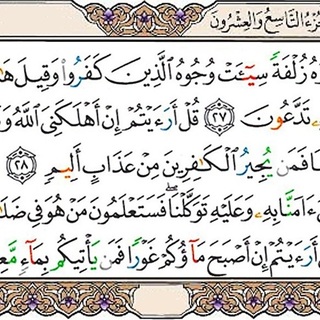 الجزء التاسع والعشرون
زُلْفَةً سِيٓـَٔتْ وُجُوهُ ٱلَّذِينَ كَفَرُوا۟ وَقِيلَ
تَدَّعُونَ ٢٧ قُلْ أَرَءَيْتُمْ إِنْ أَهْلَكَنِىَ ٱللَّهُ
فَمَن يُجِيرُ ٱلْكَـٰفِرِينَ مِنْ عَذَابٍ أَلِيمٍ ٢٨
ءَامَنَّا بِهِۦ وَعَلَيْهِ تَوَكَّلْنَا ۖ فَسَتَعْلَمُونَ مَنْ هُوَ فِى
أَرَءَيْتُمْ إِنْ أَصْبَحَ مَآؤُكُمْ غَوْرًا فَمَن يَأْتِيكُم بِمَآءٍ